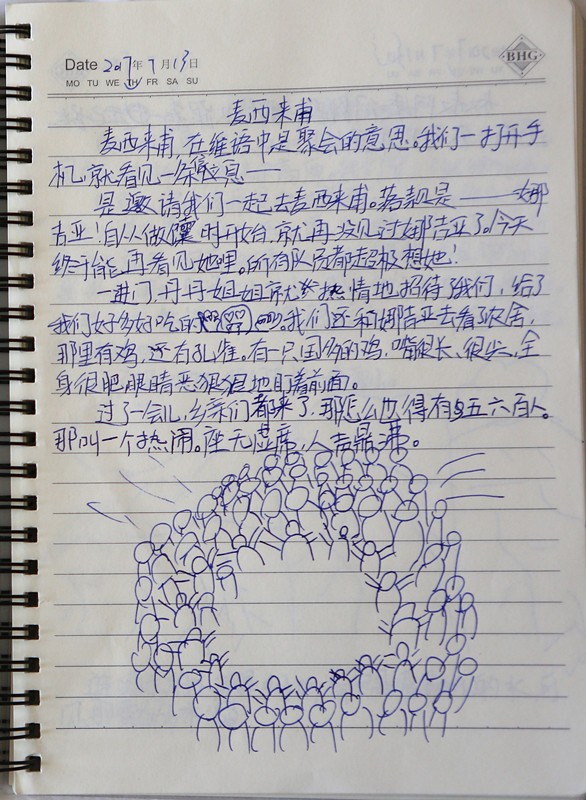 Date 2017年7月13日
BHG
MO TU WE TH FR SA SU
麦西来甫
麦西来甫,在维语中是聚会的意思。我们一打开手
机,就看见一条消息——
是邀请我们一起去麦西来甫。落款是——娜
吉亚!自从做馕时开始,就再没见过娜吉亚了。今天
终于能再看见她哩。所有队员都超级想她!
一进门,丹丹姐姐就热情地招待了我们,给了
我们好多好吃的。我们还和娜吉亚去看了农舍,
那里有鸡,还有孔雀。有一只国多的鸡,嘴很长、很尖,全
身很肥,眼睛恶狠狠地盯着前面。
过了一会儿,乡亲们都来了,那怎么也得有五六百人。
那叫一个热闹。座无虚席,人声鼎沸。